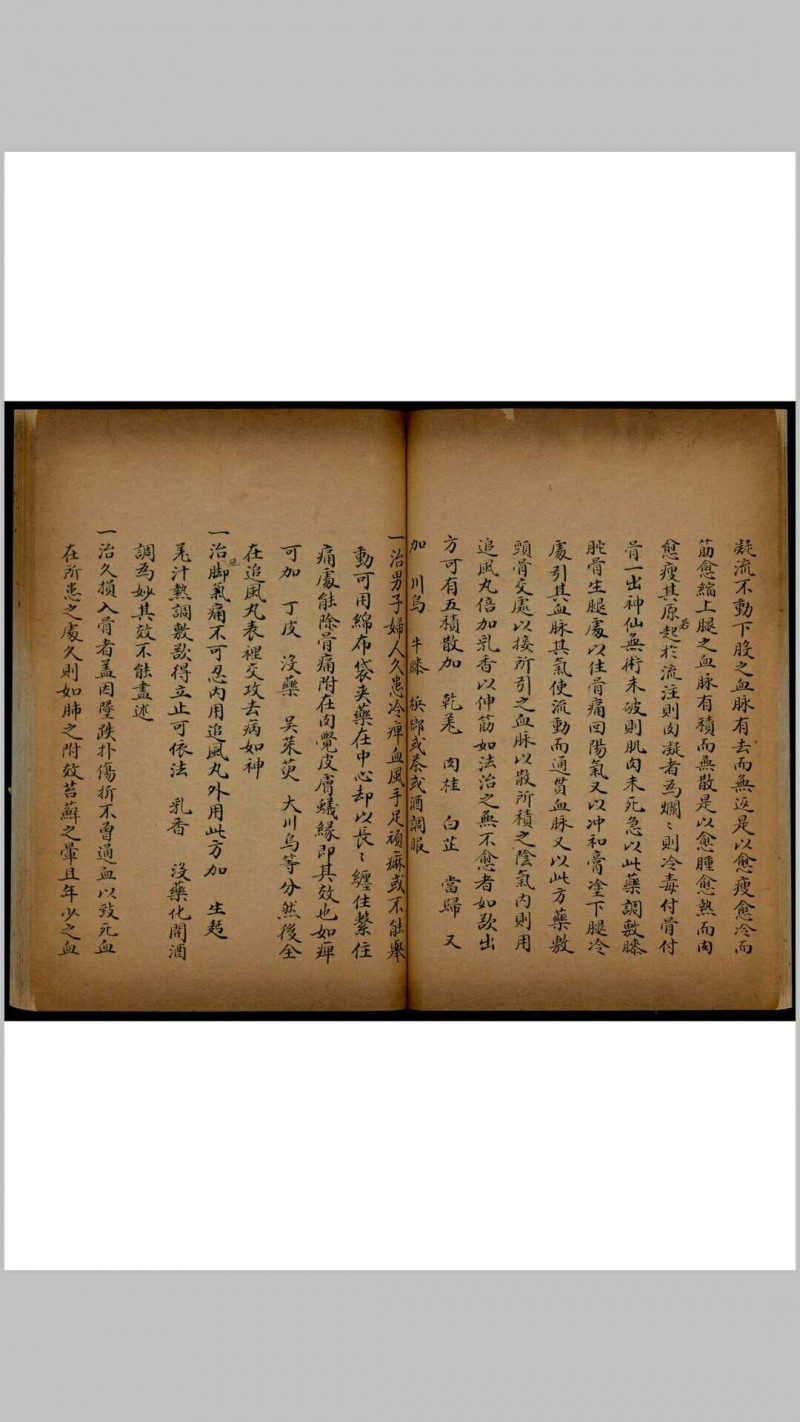 凝流不動下股之血脉有去而無返是以愈瘦愈冷而
筋愈縮上腿之血脉有積而無散是以愈腫愈熱而肉
愈瘦其原起於流注則肉凝者為爛〻則冷毒付骨付
若
骨一出神仙無術未破則肌肉未死急以此藥調敷膝
胣骨生腿處以住骨痛回陽氣又以冲和膏塗下腿冷
處引其血脉其氣使流動而通貫血脉又以此方藥敷
頭骨交處以接所引之血脉以散所積之陰氣內則用
追風丸倍加乳香以伸筋如法治之無不愈者如欲出
方可有五積散加 乾羗 肉桂 白芷 當歸 又
加 川烏 牛膝 槟郎或茶或酒調服
一治男子婦人久患冷痺血風手足頑痳或不能舉
動可用綿布袋夾藥在中心却以長〻纏住繫住
痛處能除骨痛附在肉覺皮膚蟻緣即其效也如痺
可加 丁皮 没藥 吴茱萸 大川烏等分然後全
在追風丸表裡交攻去病如神
一治脚氣痛不可忍内用追風丸外用此方加 生
尾汁熱調敷欲得立止可依法 乳香 没藥化開酒
調為妙其效不能盡述
一治久損入骨者盖因墜跌扑傷折不曾通血以致死血
在所患之處久則如肺之附效苔蘚之暈且年少之血